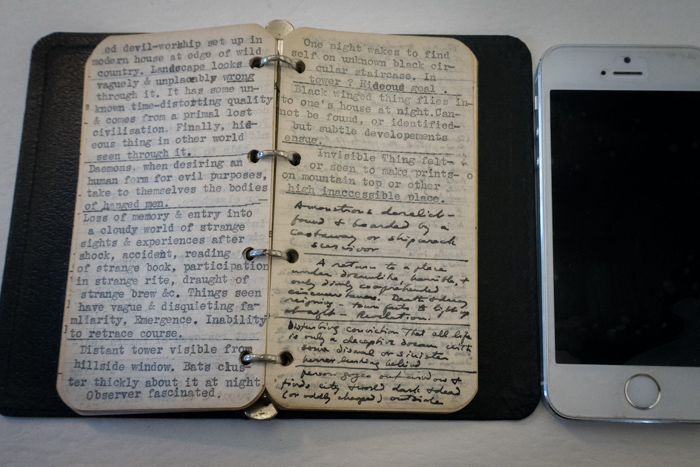 ed devil-worship set up in
modern house at edge of wild
country. Landscape looks
vaguely & unplaceably wrong
through it. It has some un-
known time-distorting quality
& comes from a primal lost
civilisation. Finally, hid-
eous thing in other world
seen through it.
Daemons, when desiring an
human form for evil purposes,
take to themselves the bodies
of hanged men.
Loss of memory & entry into
a cloudy world of strange
sights & experiences after
shock, accident, reading
of strange book, participation
in strange rite, draught of
strange brew &c. Things seen
have vague & disquieting fa-
miliarity, Emergence. Inability
to retrace course.
Distant tower visible from
hillside window. Bats clus-
ter thickly about it at night.
Observer fascinated.
One night wakes to find
self on unknown black cir-
cular staircase. In
tower? Hideous goal.
Black winged thing flies in-
to one's house at night. Can-
not be found, or identified-
but subtle developements
ensue.
Invisible Thing felt-
or seen to make prints-
on mountain top or other
high inaccessible place.
A monstrous derelict-
found & boarded by a
castaway or shipwreck
survivor
A return to a place
under dreamlike horrible, &
only dimly comprehended
circumstances. Death & decay
reigning - town fails to light up
at night - Revelation
Disturbing conviction that all life
is only a deceptive dream with
some dismal or sinister
horror lurking behind
person gazes out window &
finds city & world dark & dead
(or oddly changed) outside